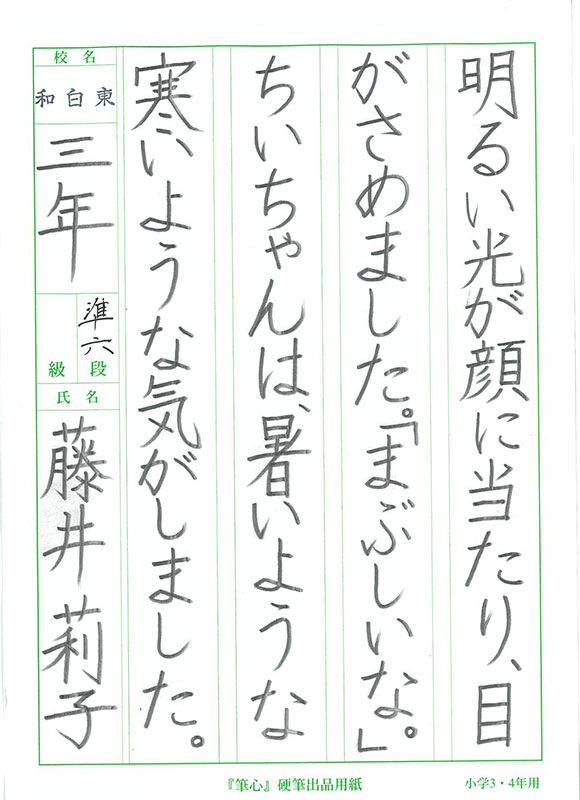 明るい光が顔に当たり、目
がさめました。「まぶしいな。」
ちいちゃんは、暑いような
寒いような気がしました。
校名
東白和
三年
準六
段
級
氏名
藤井莉子
『筆心』硬筆出品用紙
小学3・4年用